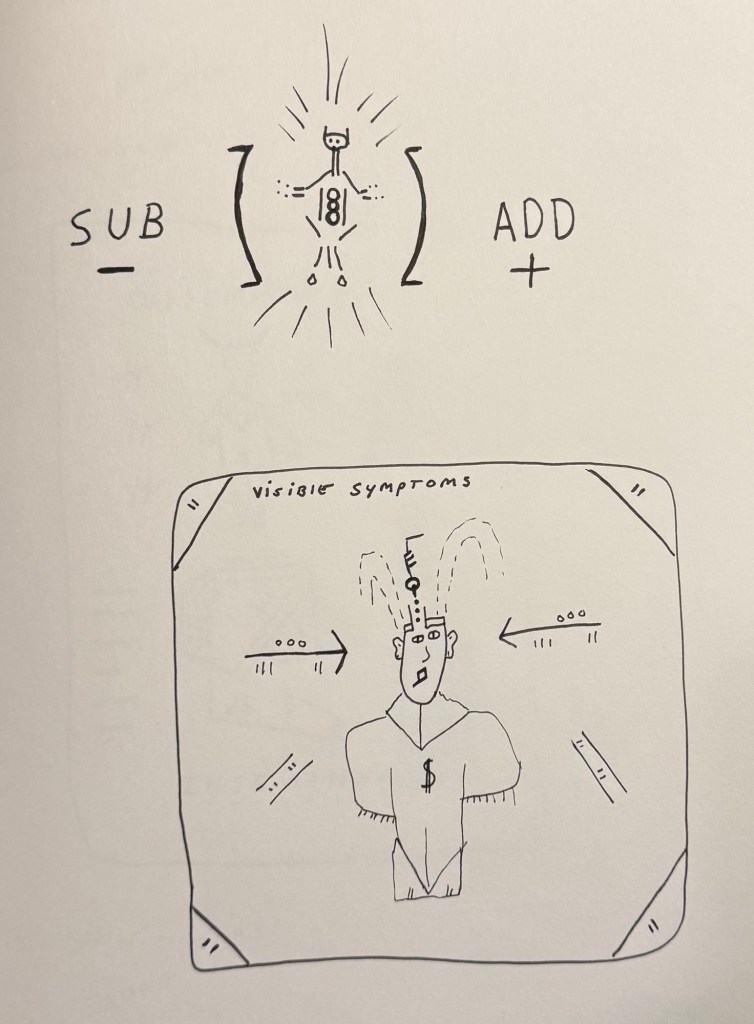 SUB ADD
- +
VISIBLE SYMPTOMS
$